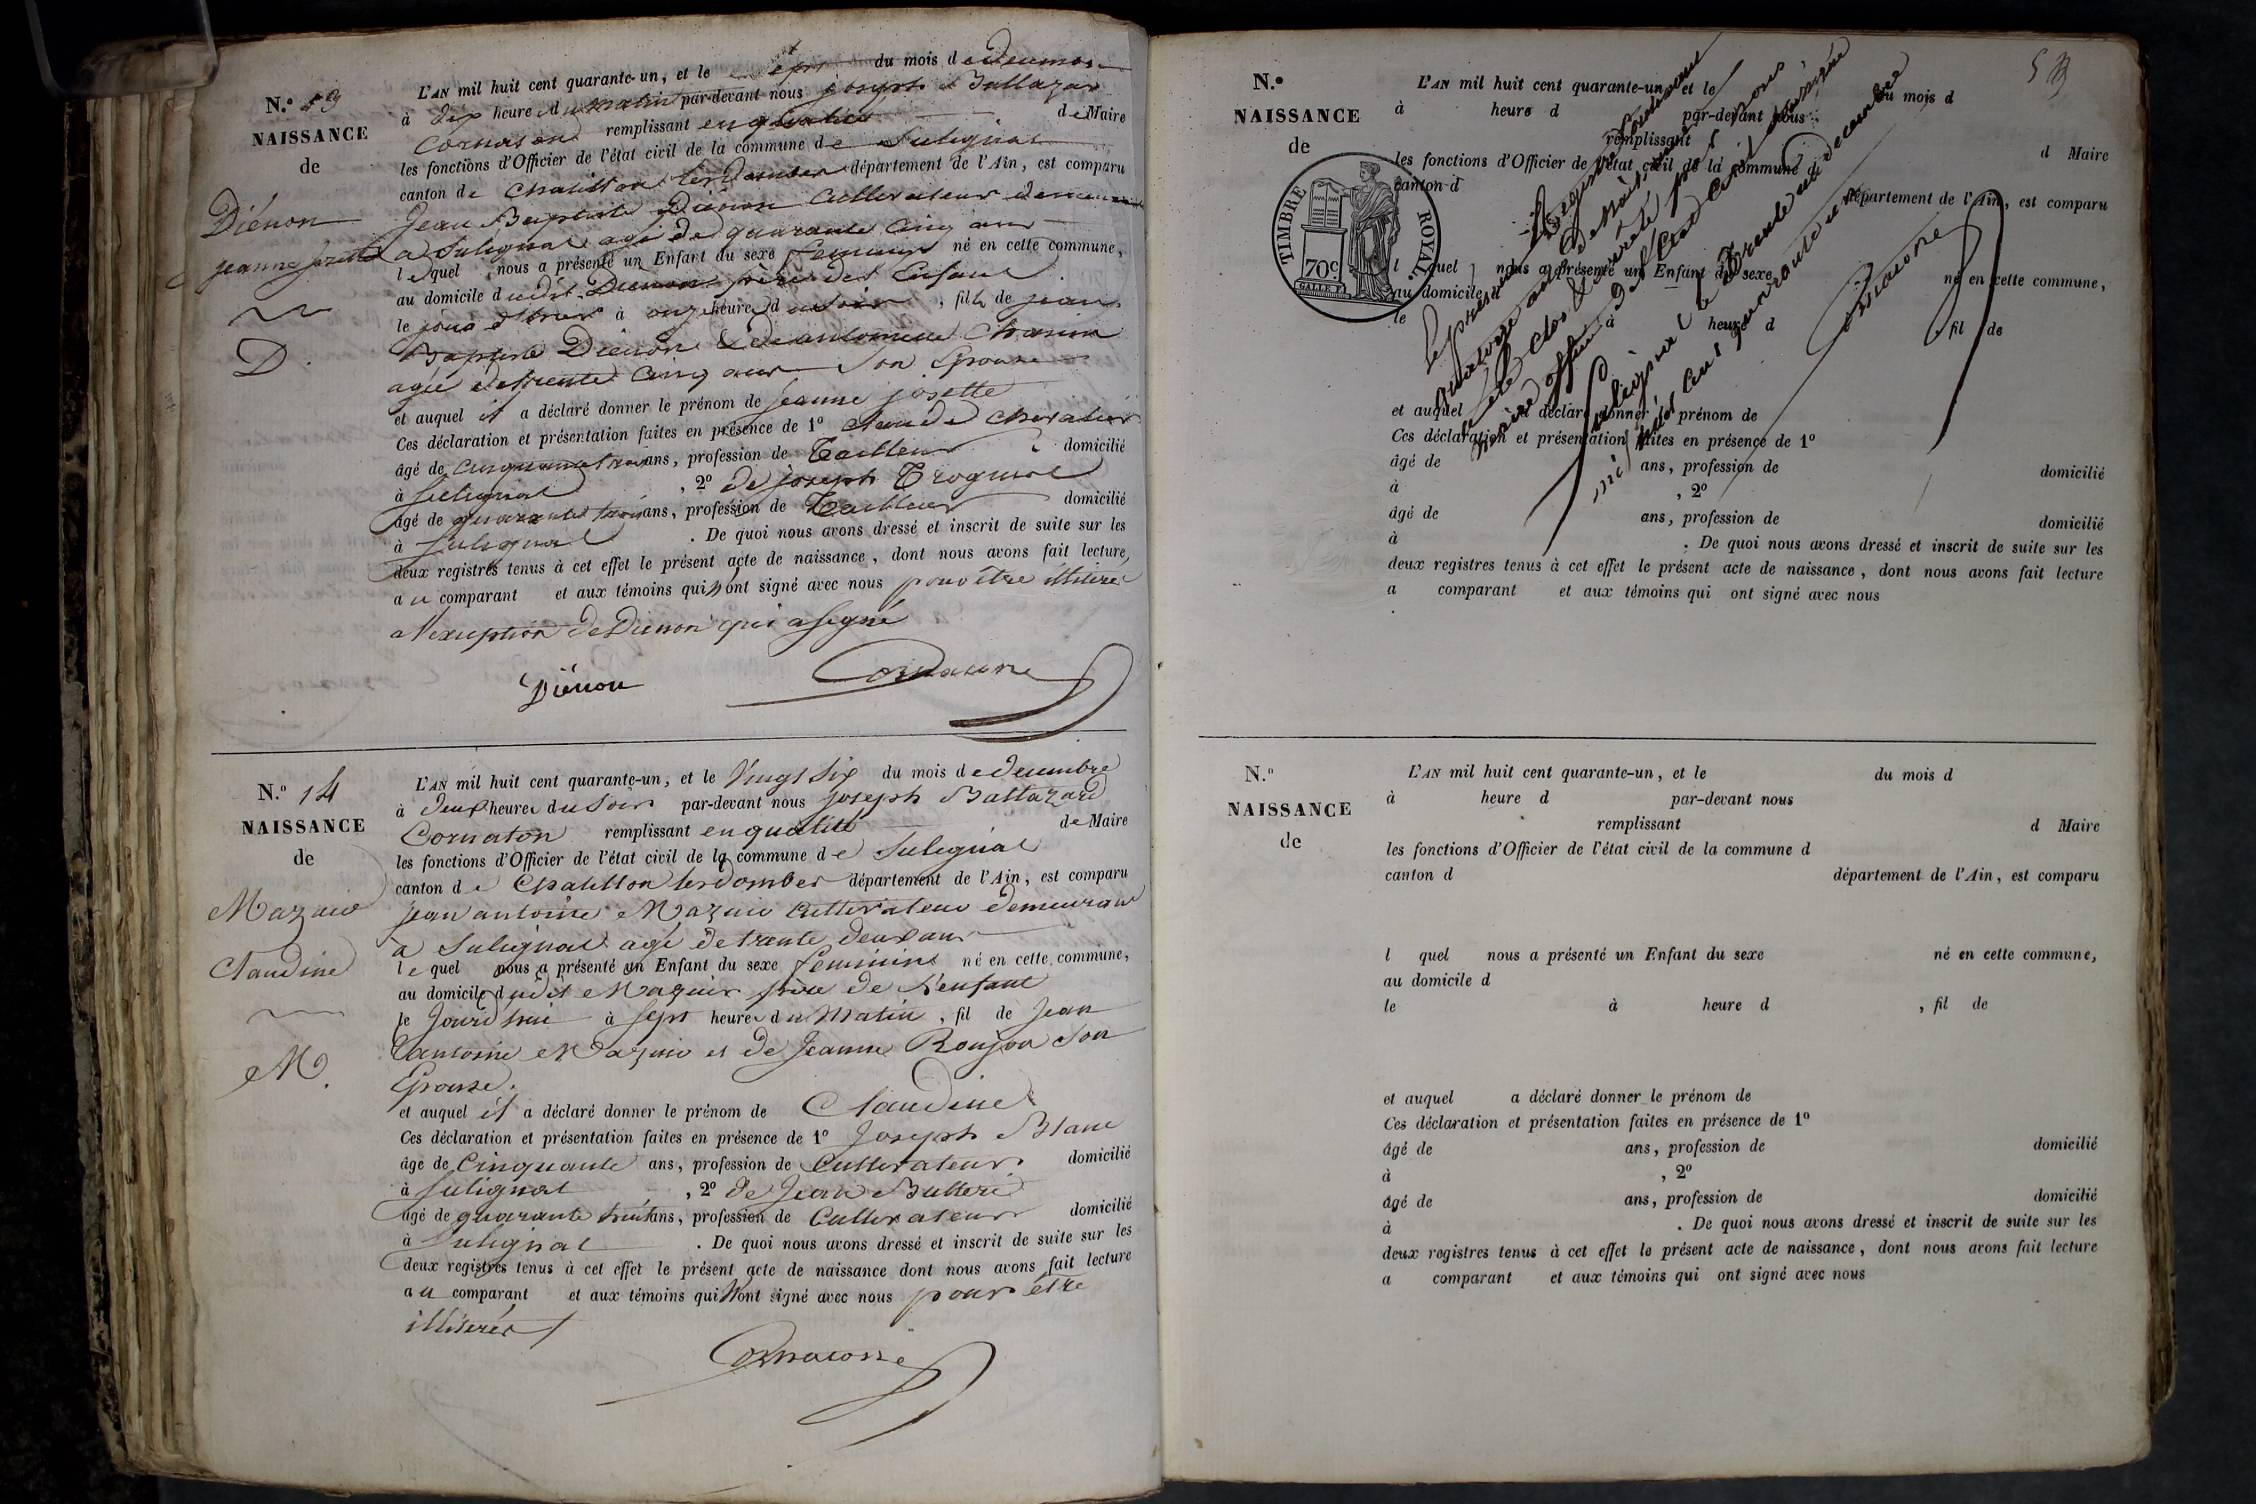 N.°
NAISSANCE
de
Diénon
jeanne josette
D.
L'AN mil huit cent quarante-un, et le sept du mois de
à dix heure du matin par-devant nous joseph Baltazar
remplissant en qualité de Maire
les fonctions d'Officier de l'état civil de la commune de Sulignat
canton de Chatillon les Dombes département de l'Ain, est comparu
Jean Baptiste Diénon Cultivateur
a Sulignat agé de quarante Cinq ans
lequel nous a présenté un Enfant du sexe féminin né en cette commune,
au domicile dudit Dienon père de l'enfant
le jour d'hier à onze heure du soir, fille de jean
Baptiste Dienon & de antoinette
agée de trente Cinq ans Son Epouse
et auquel il a déclaré donner le prénom de jeanne josette
Ces déclaration et présentation faites en présence de 1° Claude Chevalier
âgé de cinquante ans, profession de Tailleur domicilié
à Sulignat, 2° de joseph
âgé de quarante trois ans, profession de Tailleur domicilié
à Sulignat. De quoi nous avons dressé et inscrit de suite sur les
deux registres tenus à cet effet le présent acte de naissance, dont nous avons fait lecture,
au comparant et aux témoins qui n'ont signé avec nous pour être illiterés
a l'exception de Dienon qui a signé
Diénon Cornaton
N.° 14
NAISSANCE
de
Mazuir
Claudine
M.
L'AN mil huit cent quarante-un, et le Vingt Six du mois de decembre
à deux heure du Soir par-devant nous joseph Baltazard
Cornaton remplissant en qualité de Maire
les fonctions d'Officier de l'état civil de la commune de Sulignat
canton de Chatillon les dombes département de l'Ain, est comparu
jean antoine Mazuir cultivateur demeurant
a Sulignat agé de trente deux ans
lequel nous a présenté un Enfant du sexe féminin né en cette commune,
au domicile dudit Mazuir père de l'enfant
le Jourd'hui à Sept heure du Matin, fil de Jean
antoine Mazuir et de Jeanne Roujon Son
Epouse.
et auquel il a déclaré donner le prénom de Claudine
Ces déclaration et présentation faites en présence de 1° Joseph Blanc
âge de Cinquante ans, profession de Cultivateur domicilié
à Sulignat, 2° de Jean
âgé de quarante huit ans, profession de Cultivateur domicilié
à Sulignat. De quoi nous avons dressé et inscrit de suite sur les
deux registres tenus à cet effet le présent acte de naissance dont nous avons fait lecture
au comparant et aux témoins qui n'ont signé avec nous pour être
illiterés
Cornaton
N.°
NAISSANCE
de
TIMBRE ROYAL.
70c
L'AN mil huit cent quarante-un, et le du mois d
à heure d par-devant nous
remplissant d Maire
les fonctions d'Officier de l'état civil de la commune d
canton d département de l'Ain, est comparu
l quel nous a présenté un Enfant du sexe né en cette commune,
au domicile d
le à heure d, fil de
et auquel a déclaré donner le prénom de
Ces déclaration et présentation faites en présence de 1°
âgé de ans, profession de domicilié
à, 2°
âgé de ans, profession de domicilié
à. De quoi nous avons dressé et inscrit de suite sur les
deux registres tenus à cet effet le présent acte de naissance, dont nous avons fait lecture
a comparant et aux témoins qui ont signé avec nous
Le présent Registre contenant
quatorze actes de Naissance
été Clos & arrêté par nous
maire officier de l'Etat Civil soussigné
Sulignat le Trente un décembre
mil huit cent quarante un
Cornaton
N.°
NAISSANCE
de
L'AN mil huit cent quarante-un, et le du mois d
à heure d par-devant nous
remplissant d Maire
les fonctions d'Officier de l'état civil de la commune d
canton d département de l'Ain, est comparu
l quel nous a présenté un Enfant du sexe né en cette commune,
au domicile d
le à heure d, fil de
et auquel a déclaré donner le prénom de
Ces déclaration et présentation faites en présence de 1°
âgé de ans, profession de domicilié
à, 2°
âgé de ans, profession de domicilié
à. De quoi nous avons dressé et inscrit de suite sur les
deux registres tenus à cet effet le présent acte de naissance, dont nous avons fait lecture
a comparant et aux témoins qui ont signé avec nous